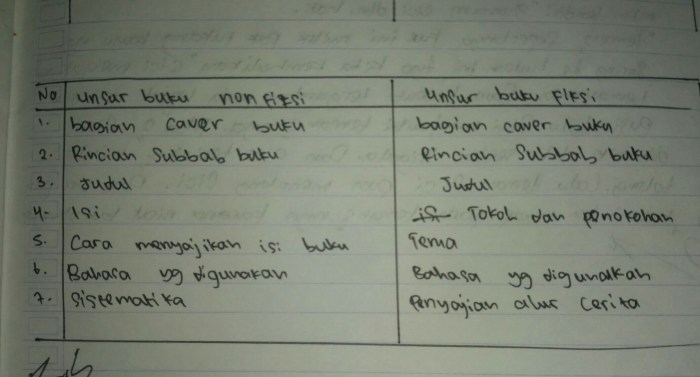 No Unsur buku non Fiksi Unsur buku Fiksi
1. bagian caver buku bagian caver buku
2. Rincian Subbab buku Rincian Subbab buku
3. Judul Judul
4. Isi Tokoh dan penokohan
5. Cara menyajikan isi buku Tema
6. Bahasa yg digunakan Bahasa yg digunalkan
7. Sistematika Penyajian alur Cerita